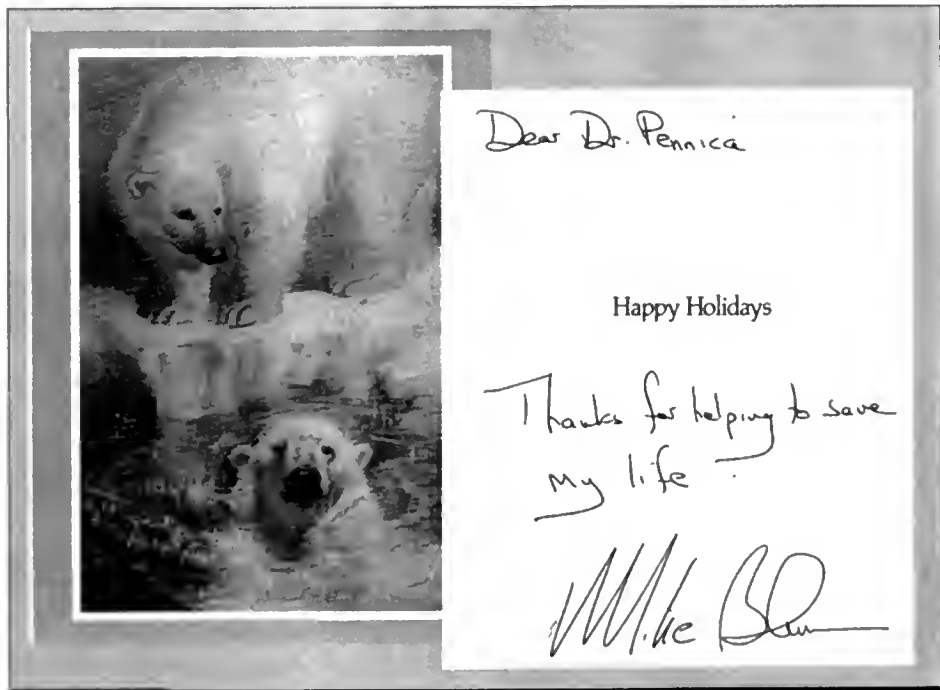 Dear Dr. Pennica
Happy Holidays
Thanks for helping to save
my life.
Mike